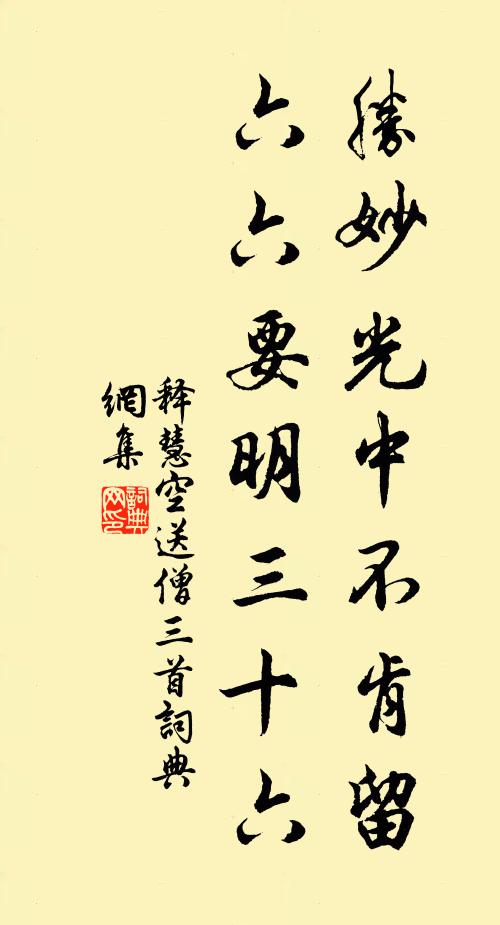 勝妙光中不肯留
六六要明三十六
释慧空送僧三首詞典
網集
詞典网印